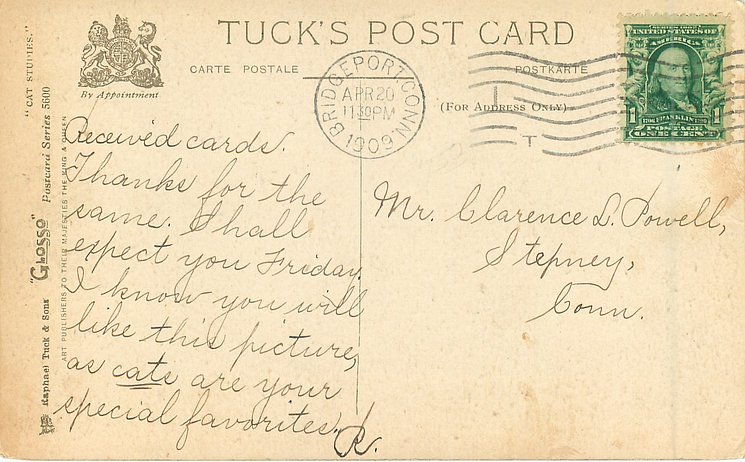 TUCK'S POST CARD
CARTE POSTALE
POSTKARTE
(FOR ADDRESS ONLY)
By Appointment
"CAT STUDIES."
Raphael Tuck & Sons "GLOSSO" Postcard Series 5600
ART PUBLISHERS TO THEIR MAJESTIES THE KING & QUEEN
BRIDGEPORT, CONN.
APR 20
11 30 PM
1909
T
SERIES 1902
UNITED STATES OF
AMERICA
1 FRANKLIN 1
POSTAGE
ONE CENT
Received cards.
Thanks for the
same. Shall
expect you Friday.
I know you will
like this picture,
as cats are your
special favorites.
R.
Mr. Clarence L. Powell,
Stepney,
Conn.